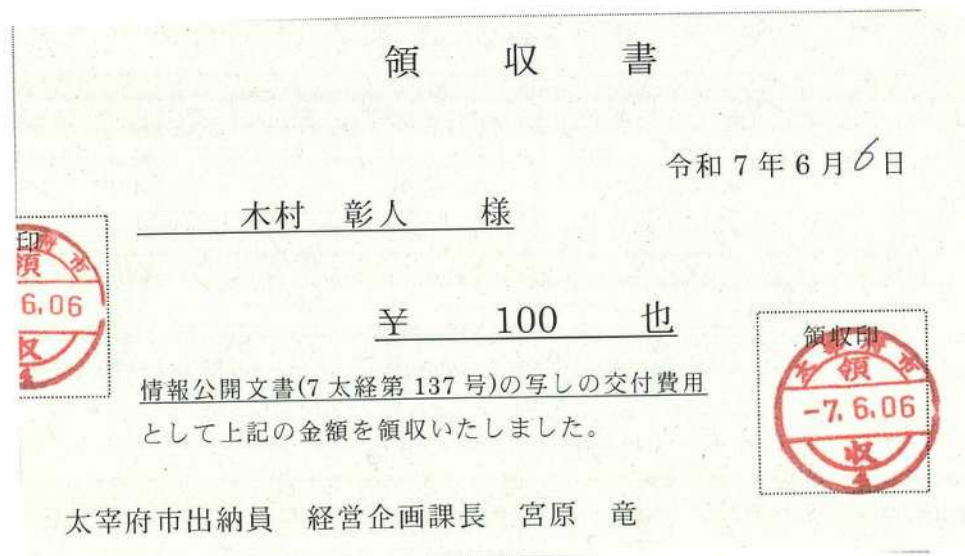 領収書
令和7年6月6日
木村 彰人 様
¥ 100 也
情報公開文書(7太経第137号)の写しの交付費用
として上記の金額を領収いたしました。
太宰府市出納員 経営企画課長 宮原 竜
印
領 府市
6.06
収
領収印
太宰府市
領
-7.6.06
収